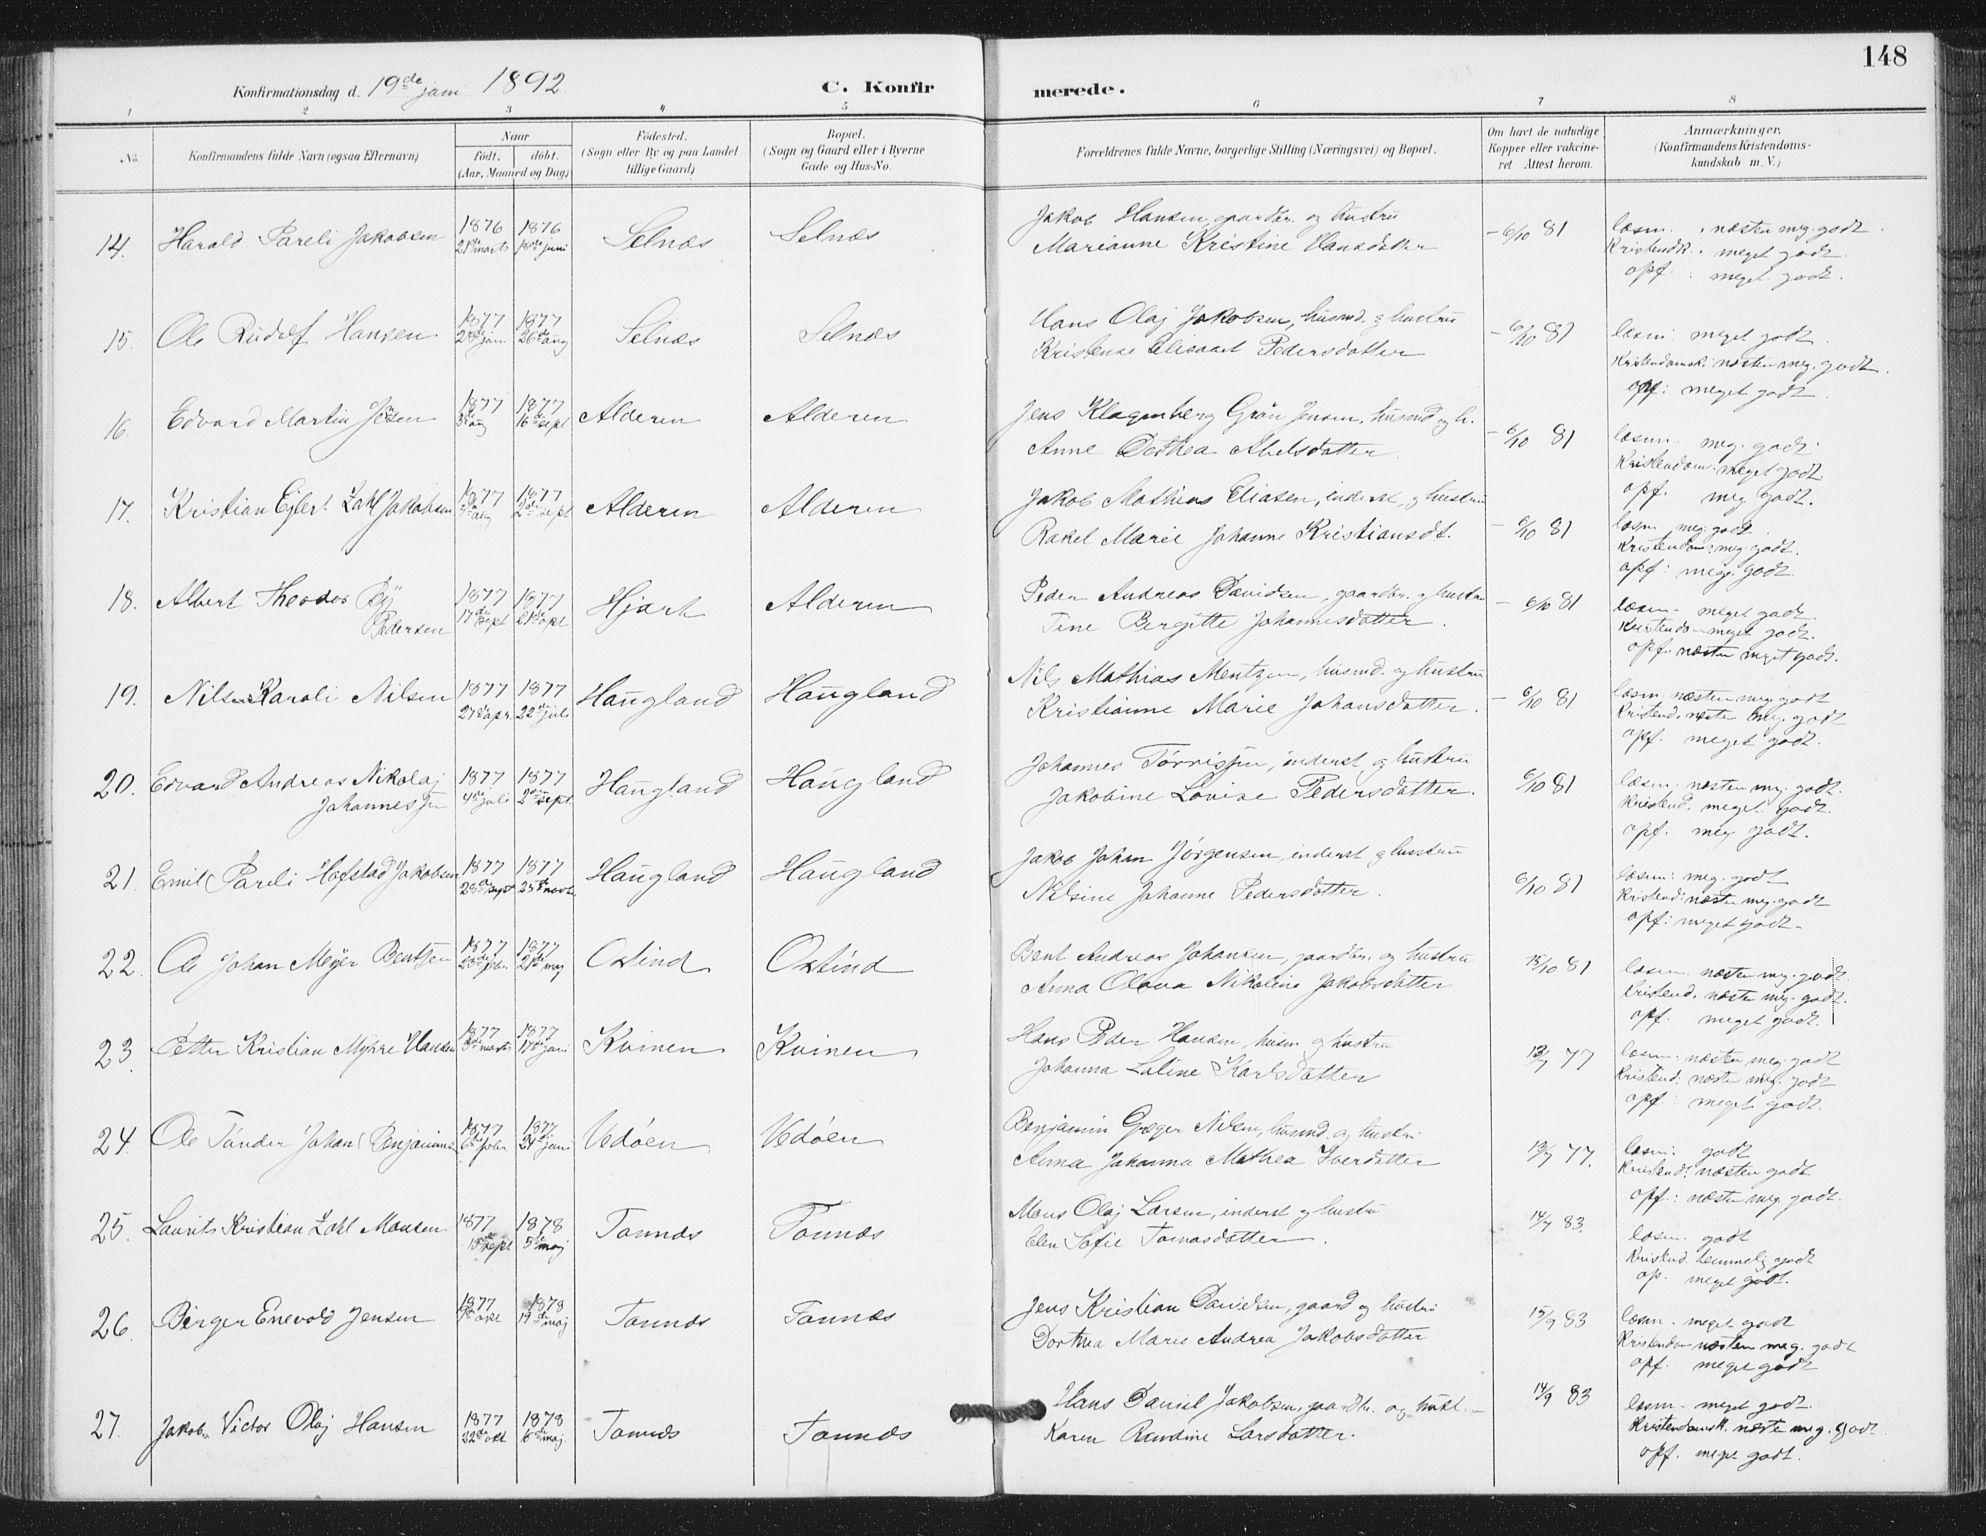 148
Konfirmationsdag d. 19de juni 1892. C. Konfirmerede.
1 2 3 4 5 6 7 8
No. Konfirmandens fulde Navn (ogsaa Efternavn) Naar født. døbt. (Aar, Maaned og Dag) Fødested. (Sogn eller By og paa Landet tillige Gaard) Bopæl. (Sogn og Gaard eller i Byerne Gade og Hus-No. Forældrenes fulde Navne, borgerlige Stilling (Næringsvei) og Bopæl. Om havt de naturlige Kopper eller vakcineret. Attest herom. Anmærkninger. (Konfirmandens Kristendomskundskab m. V.)
14. Harald Pareli Jakobsen 1876 21de marts 1876 18de juni Selnæs Selnæs Jakob Hansen, gaardbr. og hustru
Marianne Kristine Hansdatter - 6/10 81 læsn. næsten meg. godt.
Kristendk. meget godt.
opf. : meget godt.
15. Ole Rudolf Hansen 1877 juni 1877 26de aug Selnæs Selnæs Hans Olaj Jakobsen, husmd. og hustru
Pedersdatter - 6/10 81 læsn: meget godt.
Kristendomsk: næsten meg. godt.
opf: meget godt.
16. Edvard Martin 1877 aug 1877 16de sept Alderen Alderen Jens Grøn Jensen, husmd og h.
Anne Dorthea Abelsdatter. - 6/10 81 læsn. meg. godt.
Kristendom: meget godt
opf. meg godt.
17. Kristian Ejlert Zahl Jakobsen 1877 aug 1877 2de sept Alderen Alderen Jakob Mathias Eliasen, inderst og hustru
Rakel Marie Johanne Kristiansdt. - 6/10 81 læsn. meg. godt.
Kristendom: meg. godt.
opf: meg. godt.
18. Albert Theodor Bÿ Pedersen 1877 17de sept 1877 Hjart Alderen Peder Andreas Davidsen, gaardbr. og hustru
Tine Bergitte Johannesdatter. - 6/10 81 læsn. meget godt.
Kristendo- meget godt.
opf. næsten meget godt.
19. Nils Karoli Nilsen 1877 27de apr. 1877 22de juli Haugland Haugland Nils Mathias Mentzen, husmd. og hustru
Kristianne Marie Johansdatter. - 6/10 81 læsn. næsten meg. godt
Kristend. næsten meg. godt
opf. meget godt.
20. Edvard Andreas Nikolaj Johannessen 1877 4de juli 1877 2den sept. Haugland Haugland Johannes Tørrissen, inderst og hustru
Jakobine Lovise Pedersdatter. 6/10 81 læsn. næsten meg. godt.
Kristend. meget godt.
opf. meg godt.
21. Emil Pareli Hofstad Jakobsen 1877 28de sept 1877 25de novbr Haugland Haugland Jakob Johan Jørgensen, inderst og hustru
Nilsine Johanne Pedersdatter. 6/10 81 læsn: meg. godt
Kristend: næsten meg. godt
opf: meget godt.
22. Ole Johan Meÿer Bentsen 1877 febr. 1877 21de maj Oxtind Oxtind Bent Andreas Johansen, gaardbr. og hustru
Anna Olava Nikoline Jakobsdatter 15/10 81 læsn. næsten meg. godt.
Kristend. næsten meg. godt.
opf. meget godt.
23. Petter Kristian Myhre Hansen 1877 marts 1877 17de juni Kvinen Kvinen Hans Peder Hansen, husm og hustru
Johanna Larsdatter 13/7 77 læsn. næsten meg. godt
Kristend: næsten meg. godt
opf. meget godt.
24. Ole Tønder Johan Benjamins. 1877 6te febr 1877 juni Vedøen Vedøen Benjamin Greger Nilsen, husmd. og hustru
Anna Johanna Mathea Iverdatter 13/7 77. læsn. godt
Kristend: næsten godt
opf: næsten meg. godt.
25. Laurits Kristian Zahl Monsen 1877 sept 1878 5te maj Tonnes Tonnes Mons Olaj Larsen, inderst og hustru
Elen Sofie Tomasdatter. 14/7 83. læsn. godt
Kristend. temmelig godt
op. meget godt.
26. Birger Enevold Jensen 1877 okt 1878 19de maj Tonnes Tonnes Jens Kristian Davidsen, gaard og hustru
Dorthea Marie Andrea Jakobsdatter 15/9 83 læsn. meget godt
Kristendom næsten meg. godt
opf. meget godt
27. Jakob Victor Olaj Hansen 1877 22de okt 1878 maj. Tonnes Tonnes Hans Daniel Jakobsen, gaardbr. og hust.
Karen Randine Larsdatter. 14/9 83 læsn. meget godt.
Kristendomsk. næsten meg. godt.
opf. meget godt.